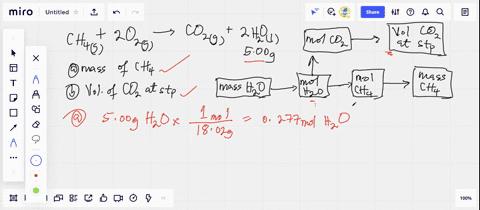 miro
Untitled
Share
CH₄(g) + 2O₂(g) → CO₂(g) + 2H₂O(l)
5.00g
ⓐ mass of CH₄ ✓
ⓑ Vol. of CO₂ at stp ✓
mol CO₂ → Vol CO₂ at stp
mass H₂O → mol H₂O → mol CH₄ → mass CH₄
ⓐ 5.00g H₂O × 1 mol / 18.02g = 0.277mol H₂O
100%